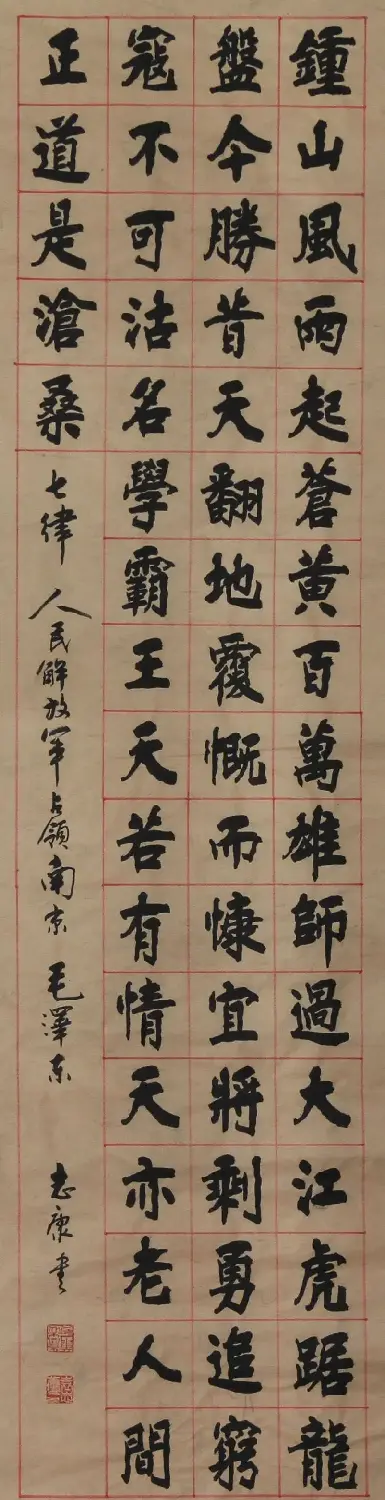 鍾山風雨起蒼黃百萬雄師過大江虎踞龍
盤今勝昔天翻地覆慨而慷宜將剩勇追窮
寇不可沽名學霸王天若有情天亦老人間
正道是滄桑
七律 人民解放军占領南京 毛澤东
志康书